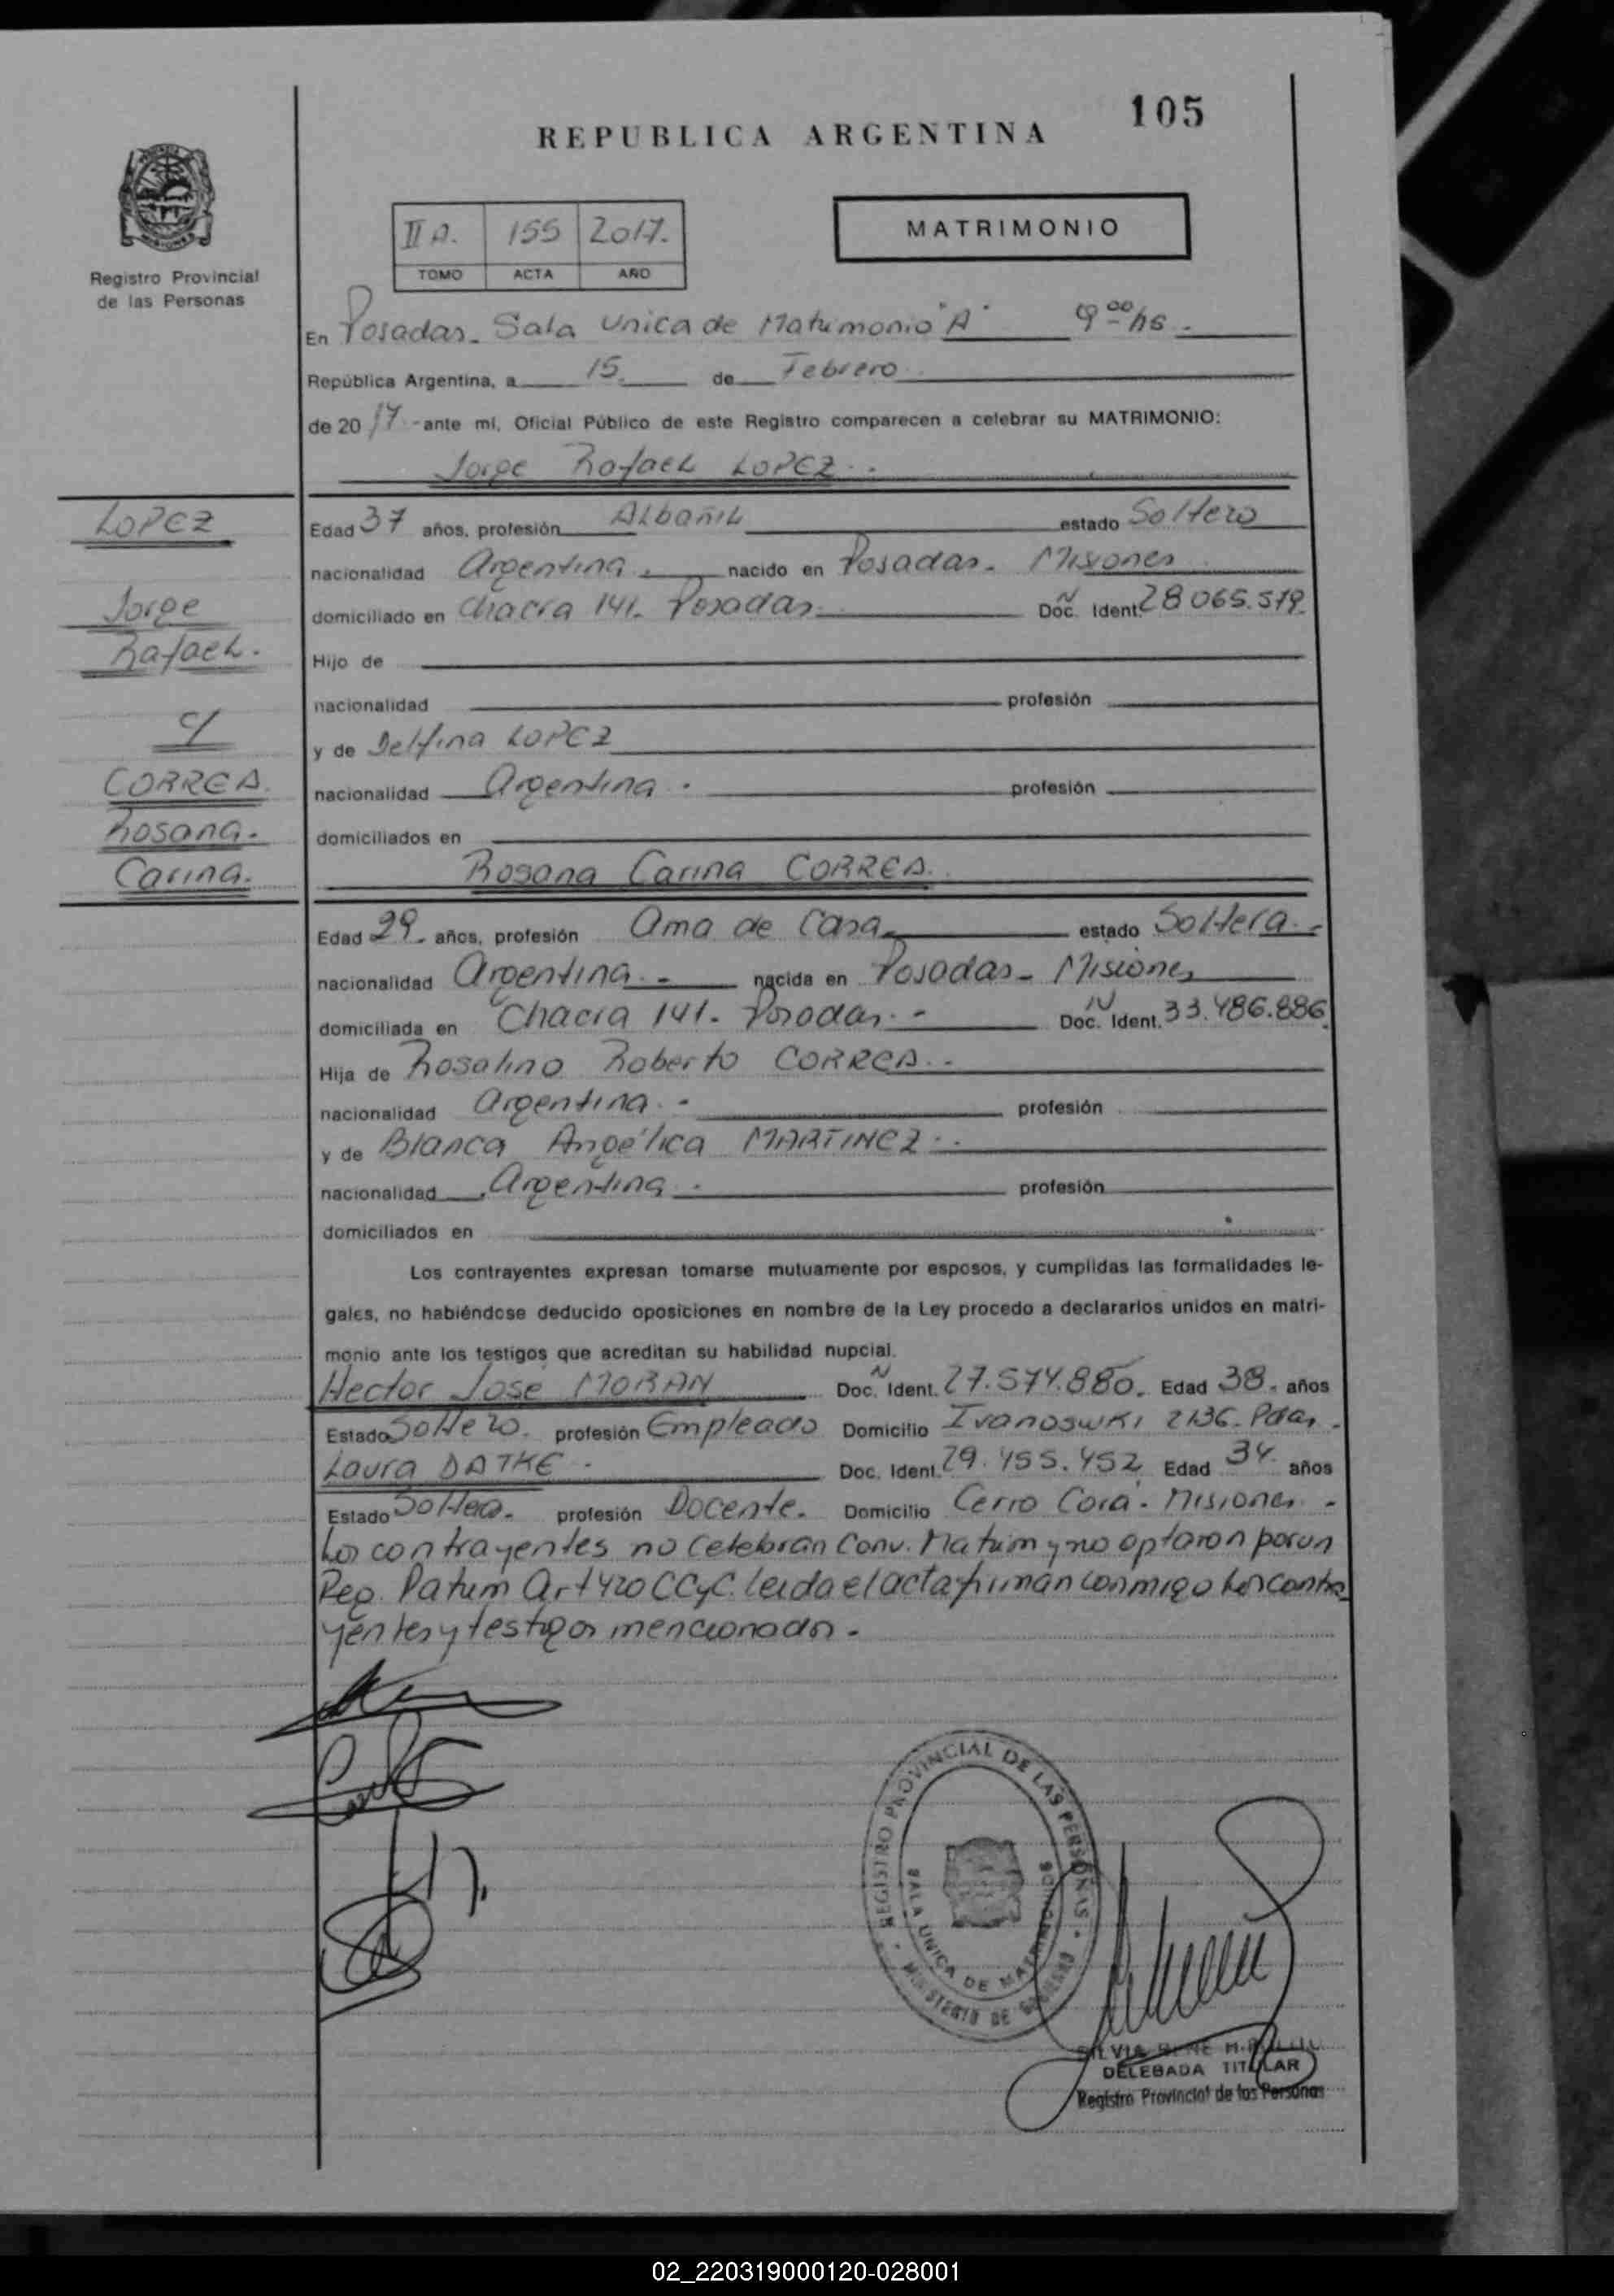 105
REPUBLICA ARGENTINA
II A. 155 2017.
TOMO ACTA AÑO
MATRIMONIO
Registro Provincial
de las Personas
En Posadas. Sala Unica de Matrimonio "A" 9 00 hs.
República Argentina, a 15 de Febrero
de 20 17 - ante mí, Oficial Público de este Registro comparecen a celebrar su MATRIMONIO:
Jorge Rafael LOPEZ.
LOPEZ
Jorge
Rafael.
c/
CORREA.
Rosana.
Carina.
Edad 37 años, profesión Albañil estado Soltero
nacionalidad Argentina. nacido en Posadas. Misiones
domiciliado en Chacra 141. Posadas. Doc. Ident. N 28 065.579.
Hijo de
nacionalidad profesión
y de Delfina LOPEZ
nacionalidad Argentina. profesión
domiciliados en
Rosana Carina CORREA.
Edad 29. años, profesión Ama de Casa. estado Soltera.-
nacionalidad Argentina.- nacida en Posadas- Misiones
domiciliada en Chacra 141. Posadas.- Doc. Ident. N 33.486.886
Hija de Rosalino Roberto CORREA..
nacionalidad Argentina.- profesión
y de Blanca Angélica MARTINEZ..
nacionalidad Argentina. profesión
domiciliados en
Los contrayentes expresan tomarse mutuamente por esposos, y cumplidas las formalidades le-
gales, no habiéndose deducido oposiciones en nombre de la Ley procedo a declararlos unidos en matri-
monio ante los testigos que acreditan su habilidad nupcial.
Hector Jose MORAN Doc. Ident. N 27.574.880. Edad 38. años
Estado Soltero. profesión Empleado Domicilio Ivanoswki 2136. Pdas.
Laura DATKE. Doc. Ident. 29.455.452 Edad 34. años
Estado Soltera. profesión Docente. Domicilio Cerro Corá. Misiones.-
Los contrayentes no celebran Conv. Matrim y no optaron por un
Reg. Patrim Art 420 CCyC. leida el acta firman conmigo los contra
yentes y testigos mencionados.
REGISTRO PROVINCIAL DE LAS PERSONAS
SALA UNICA DE MATRIMONIOS
MINISTERIO DE GOBIERNO
SILVIA
DELEGADA TITULAR
Registro Provincial de las Personas
02_220319000120-028001